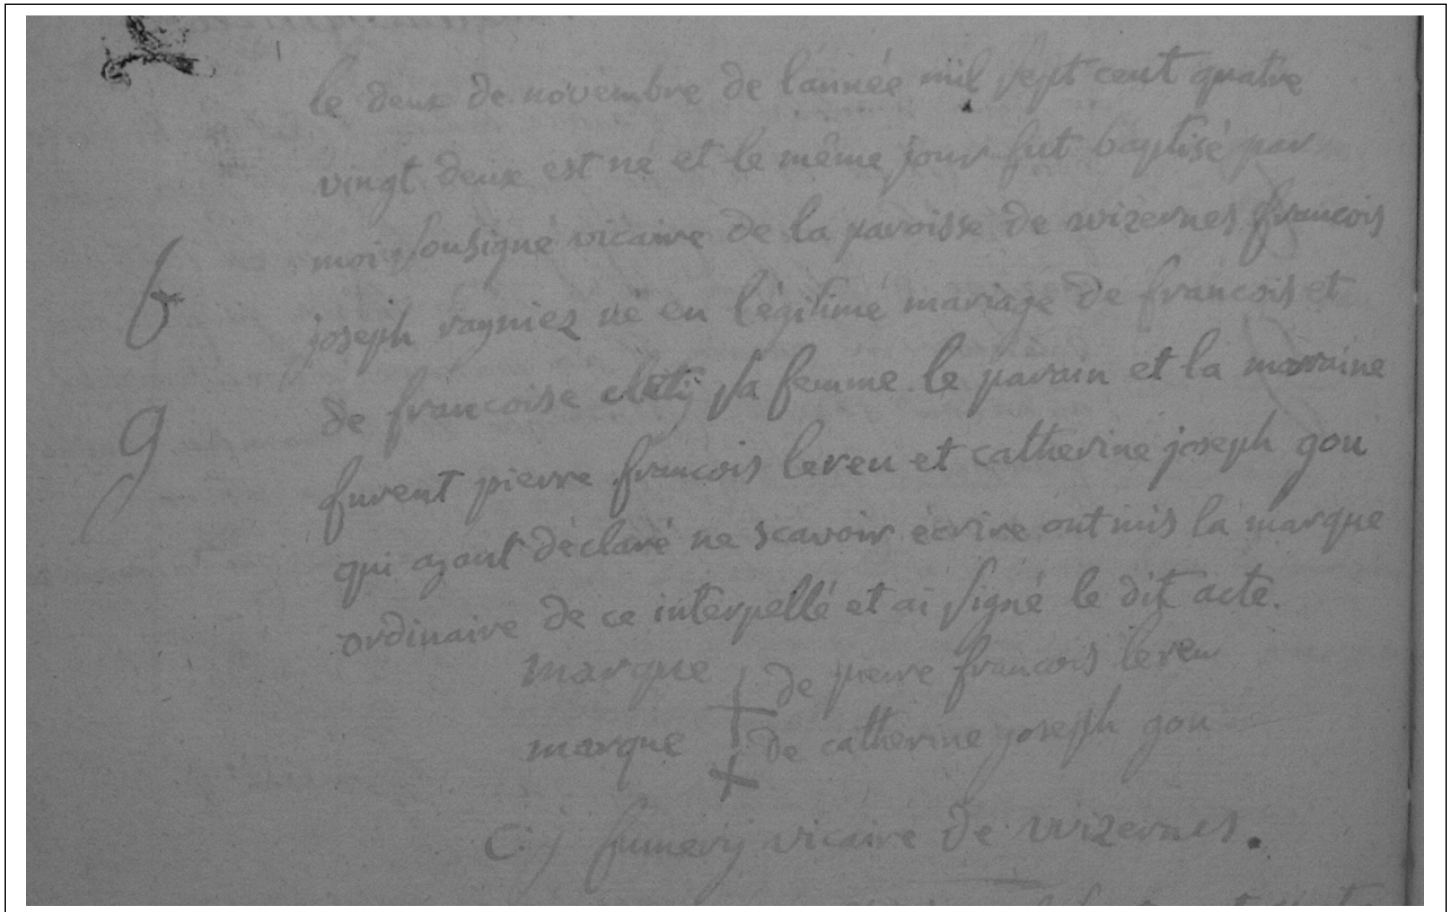 le deux de novembre de l'année mil sept cent quatre
vingt deux est né et le même jour fut baptisé par
moi sousigné vicaire de la paroisse de wizernes francois
joseph vagniez né en légitime mariage de francois et
de francoise sa femme. le parain et la maraine
furent pierre francois lereu et catherine joseph gou
qui ayant déclaré ne scavoir écrire ont mis la marque
ordinaire de ce interpellé et ai signé le dit acte.
marque + de pierre francois lereu
marque + de catherine joseph gou
C. j fumery vicaire de wizernes.
b
g